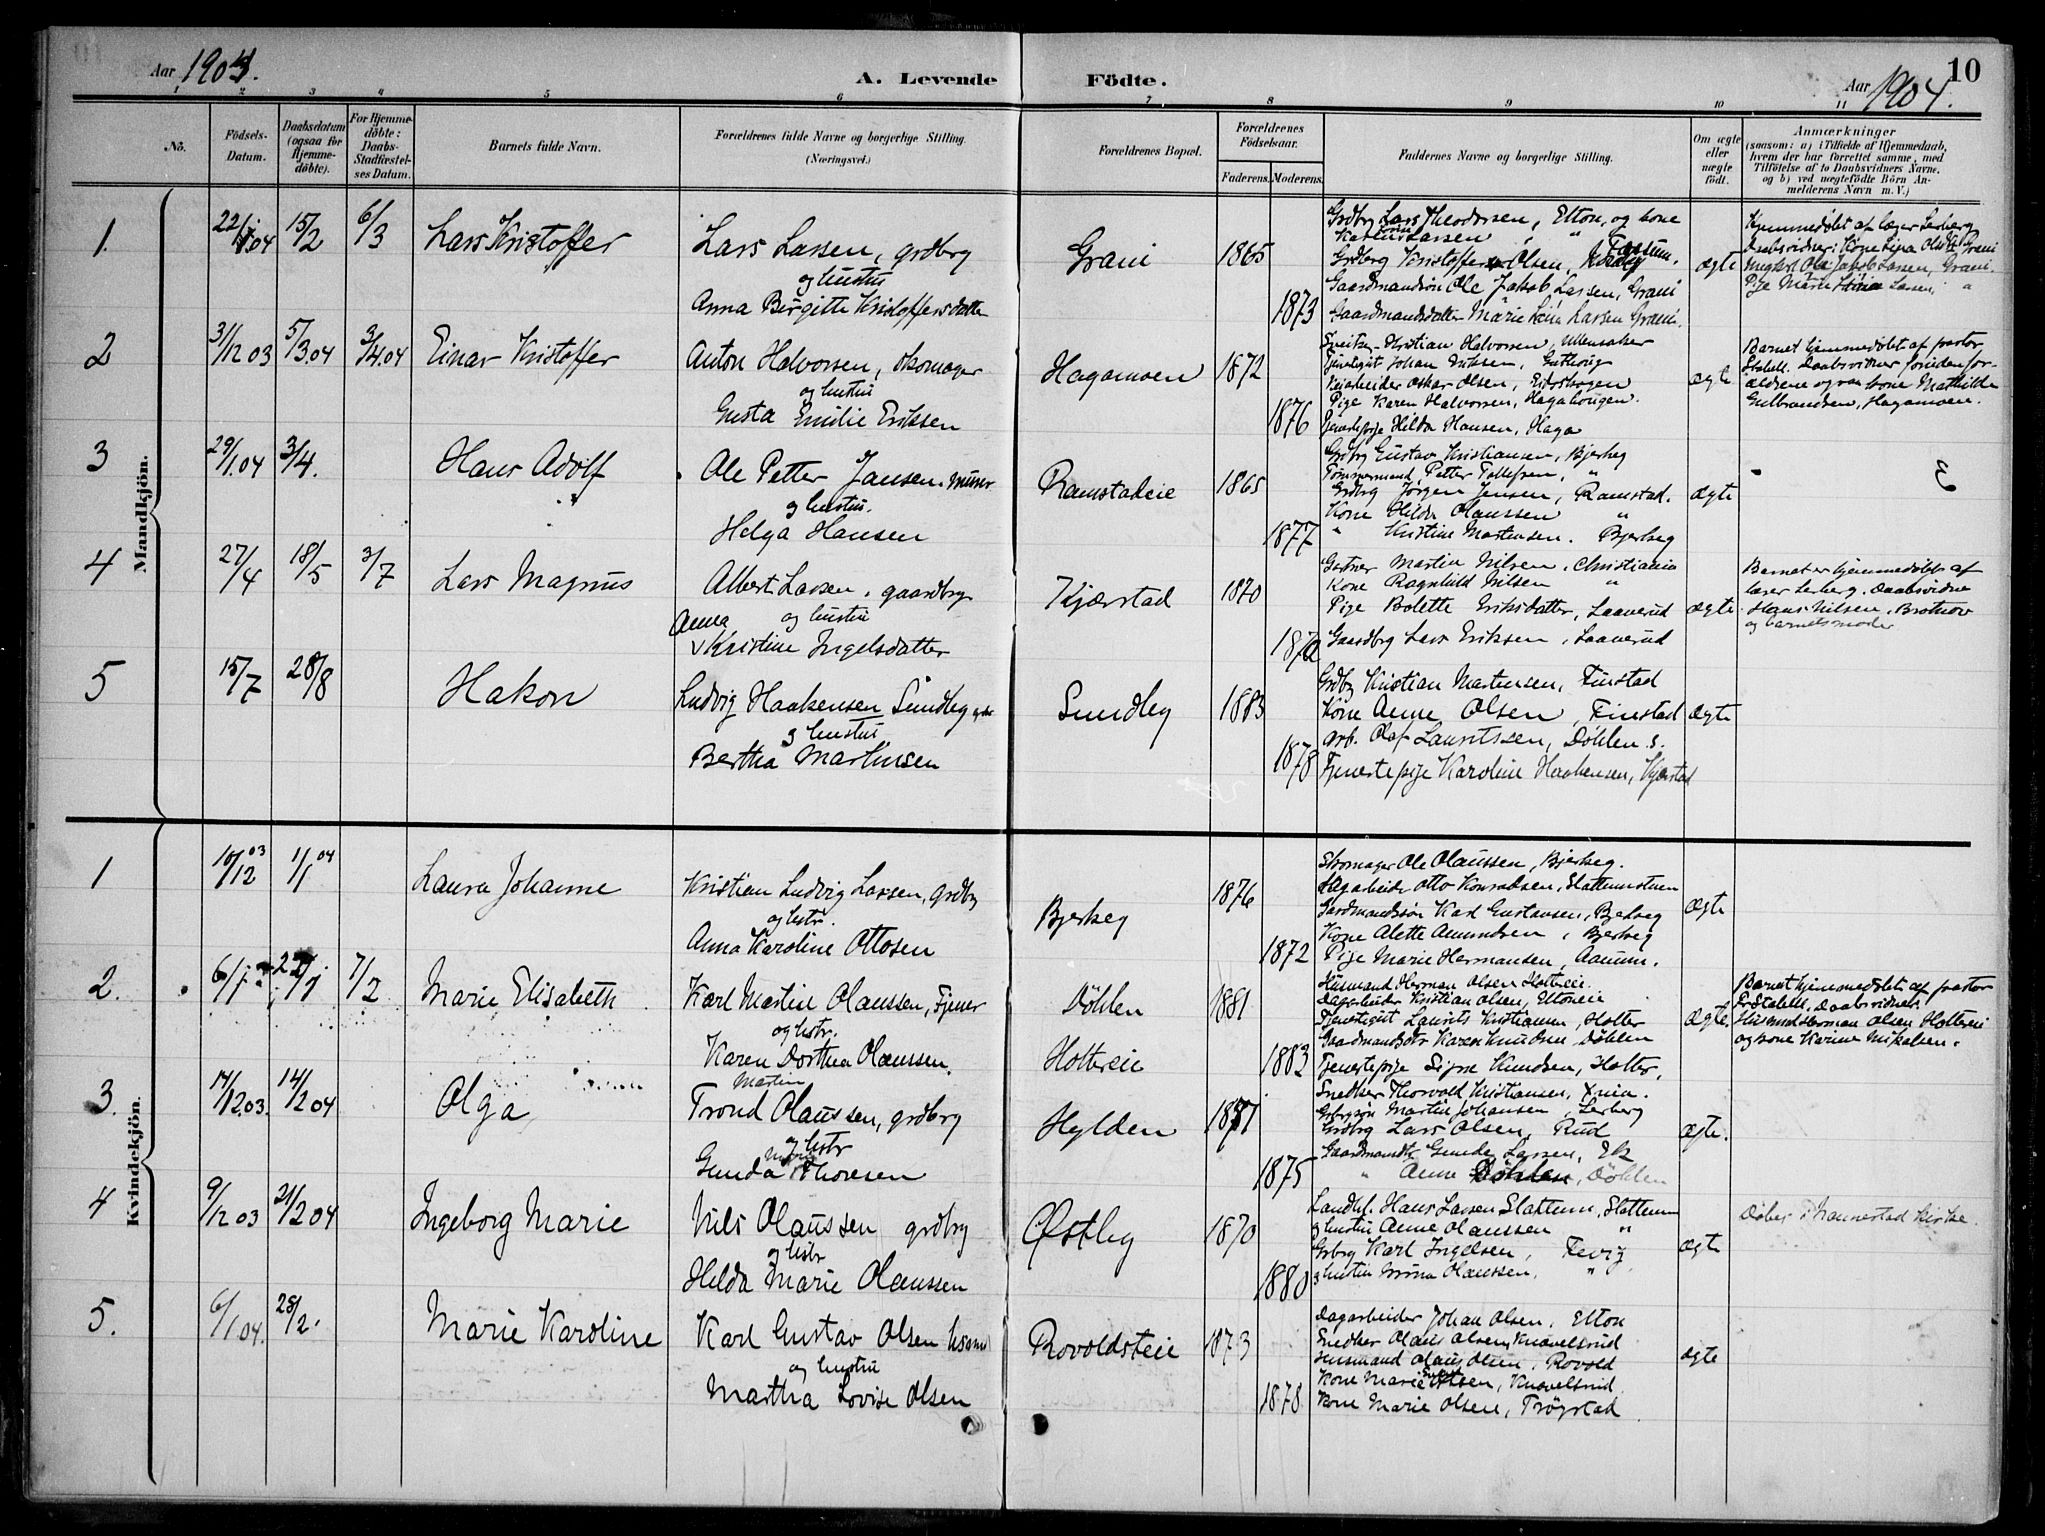 Aar 1904.
A. Levende Födte.
Aar 1904.
10
1 2 3 4 5 6 7 8 9 10 11
No.
Födsels-Datum.
Daabsdatum (ogsaa for Hjemme-döbte).
For Hjemme-döbte: Daabs-Stadfæstel-ses Datum.
Barnets fulde Navn.
Forældrenes fulde Navne og borgerlige Stilling. (Næringsvei.)
Forældrenes Bopæl.
Forældrenes Födselsaar.
Faderens. Moderens.
Faddernes Navne og borgerlige Stilling.
Om ægte eller uægte födt.
Anmærkninger
(saasom: a) i Tilfælde af Hjemmedaab,
hvem der har forrettet samme, med
Tilföielse af to Daabsvidners Navne.
og b) ved uægtefödte Börn An-
melderens Navn m. V.)
Mandkjön.
1. 22/1 04 15/2 6/3 Lars Kristoffer
Lars Larsen, grdbrg
og hustru
Anna Birgitte Kristoffersdatter
Grani 1865 1873
Grdbrg Lars Theodorsen, Elton, og kone
Larsen "
Grdbrg Kristoffer Olsen,
Gaardmandsön Ole Jakob Larsen, Grani
Gaardmandsdatter Marie Lina Larsen Grani.
ægte
Hjemmedöbt af læger Lerberg
Daabsvidner: Kone Lina Olsen Grani
Ole Jakob Larsen, Grani.
Pige Marie Larsen, "
2 31/12 03 5/3 04 3/4 04 Einar Kristoffer
Anton Halvorsen, skomager
og hustru
Gusta Emilie Eriksen
Hagamoen 1872 1876
Kristian Halvorsen, Ullensaker
Tjenstgut Johan Eriksen,
Veiarbeider Oskar Olsen,
Pige Karen Halvorsen, Hagahougen.
Tjenestepige Hilda Hansen, Haga
ægte
Barnet hjemmedöbt af pastor
Stabell. Daabsvidner foruden for-
ældrene ogsaa kone Mathilde
Gulbrandsen, Hagamoen.
3 29/1 04 3/4. Hans Adolf
Ole Petter Jansen, murer
og hustru.
Helga Hansen
Ramstadeie 1865 1877
Grdbrg Gustav Kristiansen, Bjerkeg
Tömmermand Petter Tollefsen, "
Grdbrg Jörgen Jensen, Ramstad.
Kone Hilda Olaussen "
" Kristine Martensen. Bjerkeg
ægte
4 27/4 18/5 3/7 Lars Magnus
Albert Larsen, gaardbrg
og hustru
Anna Kristine Ingelsdatter
Kjærstad 1870
Gartner Martin Nilsen, Christiania
Kone Ragnhild Nilsen "
Pige Bolette Eriksdatter, Laaverud
Gaardbrg Lars Eriksen, Laaverud
ægte
Barnet er hjemmedöbt af
læger Lerberg. Daabsvidne
Hans Nilsen, Brotnov
og barnets moder
5 15/7 28/8 Hakon
Ludvig Haakensen Sundby
og hustru
Bertha Martinsen
Sundby 1883 1878
Grdbg Kristian Martensen, Finstad
Kone Anne Olsen, Finstad
Arb. Olaf Lauritssen, Döhlen s.
Tjenestepige Karoline Haakensen, Kjærstad
ægte
Kvindekjön.
1 10/12 03 1/1 04 Laura Johanne
Kristian Ludvig Larsen, grdbg
og hstr.
Anna Karoline Ottosen
Bjerkeg 1876 1872
Skomager Ole Olaussen, Bjerkeg.
Otto Konradsen, Slattumstuen
Gardmandssön Karl Gustavsen, Bjerkeg
Kone Alette Amundsen, Bjerkeg
Pige Marie Hermansen, Aamum.
ægte
2. 6/1 22/1 7/2 Marie Elisabeth
Karl Martin Olaussen, Tjener
og hstr.
Karen Dorthea Olaussen.
Döhlen
Holtereie 1881 1883
Husmand Herman Olsen Holtereie
Dagarbeider Kristian Olsen, Eltoneie
Tjenestgut Laurits Kristiansen, Holter
Gaardmandsdtr Karen Knudsen, Döhlen
Tjenestepige Signe Knudsen, Holter,
ægte.
Barnet hjemmedöbt af pastor
Stabell. Daabsvidner:
Husmand Herman Olsen Holtereie
og kone Karine Mikalsen.
3. 17/12 03. 14/2 04 Olga,
Trond Martin Olaussen, grdbrg
og hstr
Gunda Thoresen
Hylden 1871 1875
Snedker Thorvald Kristiansen,
Martin Johansen, Lerberg
Grdbrg Lars Olsen, Rud
Gaardmandsdtr Gunda Larsen, Ek
" Anne Döhlen, Döhlen
ægte.
4 9/12 03 21/2 04 Ingeborg Marie
Nils Olaussen grdbrg
og hstr
Helda Marie Olaussen
Østby 1870 1880
Landh. Hans Larsen Slattum, Slattum
og hustru Anne Olaussen "
Grbrg Karl Ingelsen, Tevig
og hustru Olaussen, "
ægte
Döbt i Nannestad kirke.
5. 6/1 04. 28/2. Marie Karoline
Karl Gustav Olsen husmd
og hustru
Martha Lovise Olsen
Rovoldsteie 1873 1878
Dagarbeider Johan Olsen, Elton
Snedker Olaus Olsen, Knavelsrud
Husmand Olaus Olsen, Rovold
Kone Marie Olsen, Knavelsrud
Kone Marie Olsen, Trögstad
ægte